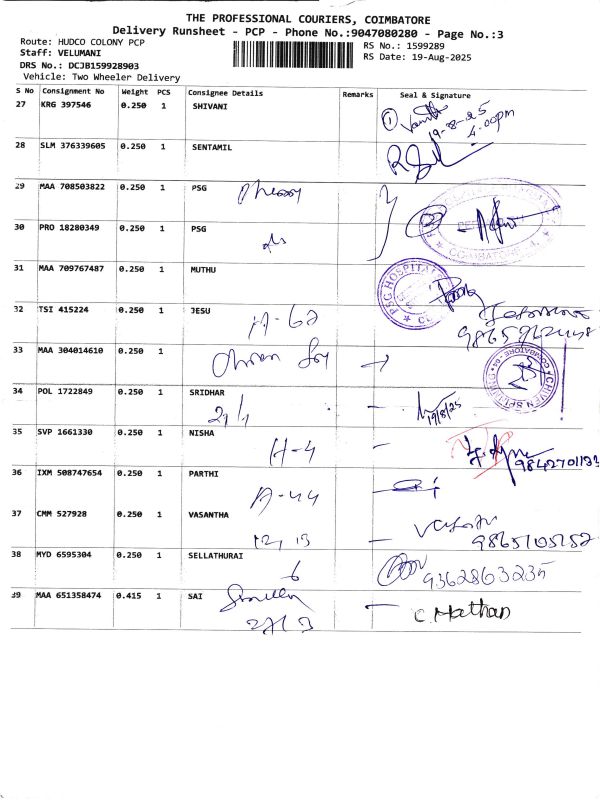 THE PROFESSIONAL COURIERS, COIMBATORE
Delivery Runsheet - PCP - Phone No.:9047080280 - Page No.:3
Route: HUDCO COLONY PCP
RS No.: 1599289
Staff: VELUMANI
RS Date: 19-Aug-2025
DRS No.: DCJB159928903
Vehicle: Two Wheeler Delivery
S No Consignment No Weight PCS Consignee Details Remarks Seal & Signature
27 KRG 397546 0.250 1 SHIVANI
19-8-25
4.00pm
28 SLM 376339605 0.250 1 SENTAMIL
29 MAA 708503822 0.250 1 PSG
30 PRO 18280349 0.250 1 PSG
COIMBATORE
31 MAA 709767487 0.250 1 MUTHU
PSG HOSPITALS
32 TSI 415224 0.250 1 JESU
33 MAA 304014610 0.250 1
COIMBATORE
34 POL 1722849 0.250 1 SRIDHAR
19/8/25
35 SVP 1661330 0.250 1 NISHA
H-4
36 IXM 508747654 0.250 1 PARTHI
A-44
37 CMM 527928 0.250 1 VASANTHA
9865105152
38 MYD 6595304 0.250 1 SELLATHURAI
6
9362863235
39 MAA 651358474 0.415 1 SAI
C. Mathan